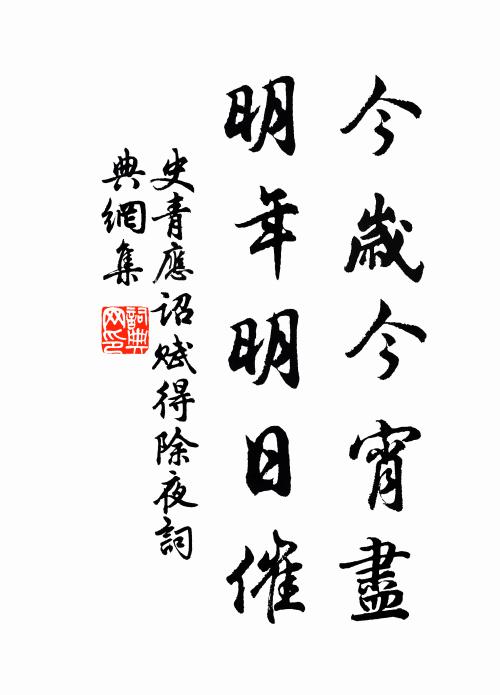 今歲今宵盡
明年明日催
史青應詔賦得除夜詞
典網集
詞典网印